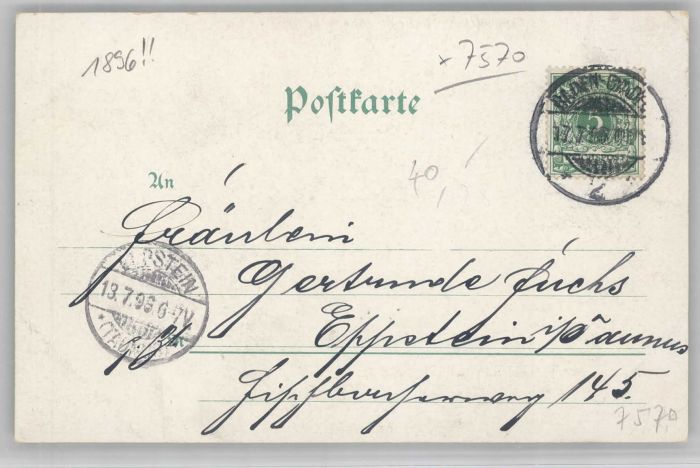 1896!!
x 7570
Postkarte
40,-
An
Fräulein
Gertrude Fuchs
Eppstein i/Taunus
Fischbacherweg 145.
BADEN-BADEN
17.7.96
2
EPPSTEIN
13.7.96 6-7V
*(TAUNUS)
5
7570